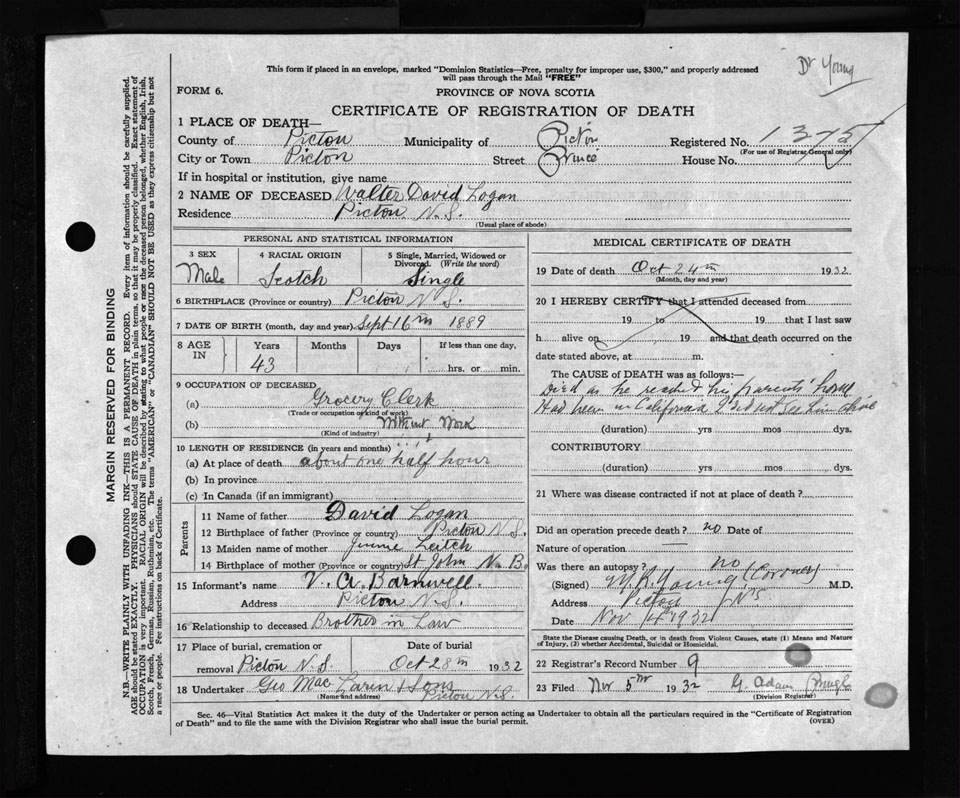 Dr Young
This form if placed in an envelope, marked "Dominion Statistics—Free, penalty for improper use, $300," and properly addressed
will pass through the Mail "FREE"
FORM 6.
PROVINCE OF NOVA SCOTIA
CERTIFICATE OF REGISTRATION OF DEATH
1 PLACE OF DEATH—
County of Pictou Municipality of Pictou Registered No. 1375
(For use of Registrar General only)
City or Town Pictou Street Prince House No.
If in hospital or institution, give name
2 NAME OF DECEASED Walter David Logan
Residence Pictou N.S.
(Usual place of abode)
PERSONAL AND STATISTICAL INFORMATION
3 SEX
Male
4 RACIAL ORIGIN
Scotch
5 Single, Married, Widowed or
Divorced. (Write the word)
Single
6 BIRTHPLACE (Province or country) Pictou N.S.
7 DATE OF BIRTH (month, day and year) Sept 16th 1889
8 AGE
IN
Years Months Days If less than one day,
43 hrs. or min.
9 OCCUPATION OF DECEASED
(a) Grocery Clerk
(Trade or occupation or kind of work)
(b) Without Work
(Kind of industry)
10 LENGTH OF RESIDENCE (in years and months)
(a) At place of death about one half hour
(b) In province
(c) In Canada (if an immigrant)
Parents
11 Name of father David Logan
12 Birthplace of father (Province or country) Pictou N.S.
13 Maiden name of mother Jennie Leitch
14 Birthplace of mother (Province or country) St John N.B.
15 Informant's name V. A. Barnwell
Address Pictou N.S.
16 Relationship to deceased Brother in Law
17 Place of burial, cremation or Date of burial
removal Pictou N.S. Oct 28th 1932
18 Undertaker Geo MacLaren & Sons
(Name and address) Pictou N.S.
MEDICAL CERTIFICATE OF DEATH
19 Date of death Oct 24th 1932
(Month, day and year)
20 I HEREBY CERTIFY that I attended deceased from
19 to 19 that I last saw
h alive on 19 and that death occurred on the
date stated above, at m.
The CAUSE of DEATH was as follows:—
Died as he reached his parents' home
Had been in California I did not see him alive
(duration) yrs mos dys.
CONTRIBUTORY
(duration) yrs mos dys.
21 Where was disease contracted if not at place of death?
Did an operation precede death? no Date of
Nature of operation —
Was there an autopsy? no
(Signed) Young (Coroner) M.D.
Address Pictou N.S
Date Nov 4th 1932
State the Disease causing Death, or in death from Violent Causes, state (1) Means and Nature
of Injury, (2) whether Accidental, Suicidal or Homicidal.
22 Registrar's Record Number 9
23 Filed Nov 5th 1932 G. Adam
(Division Registrar)
Sec. 46—Vital Statistics Act makes it the duty of the Undertaker or person acting as Undertaker to obtain all the particulars required in the "Certificate of Registration
of Death" and to file the same with the Division Registrar who shall issue the burial permit.
(OVER)
MARGIN RESERVED FOR BINDING
N.B.—WRITE PLAINLY WITH UNFADING INK—THIS IS A PERMANENT RECORD. Every item of information should be carefully supplied.
AGE should be stated EXACTLY. PHYSICIANS should STATE CAUSE OF DEATH in plain terms, so that it may be properly classified. Exact statement of
OCCUPATION is very important. RACIAL ORIGIN will be described by stating to what people or race the deceased person belonged, whether English, Irish,
Scotch, French, German, Russian, Ruthenian, etc. The terms "AMERICAN" or "CANADIAN" SHOULD NOT BE USED as they express citizenship but not
a race or people. Fee instructions on back of Certificate.